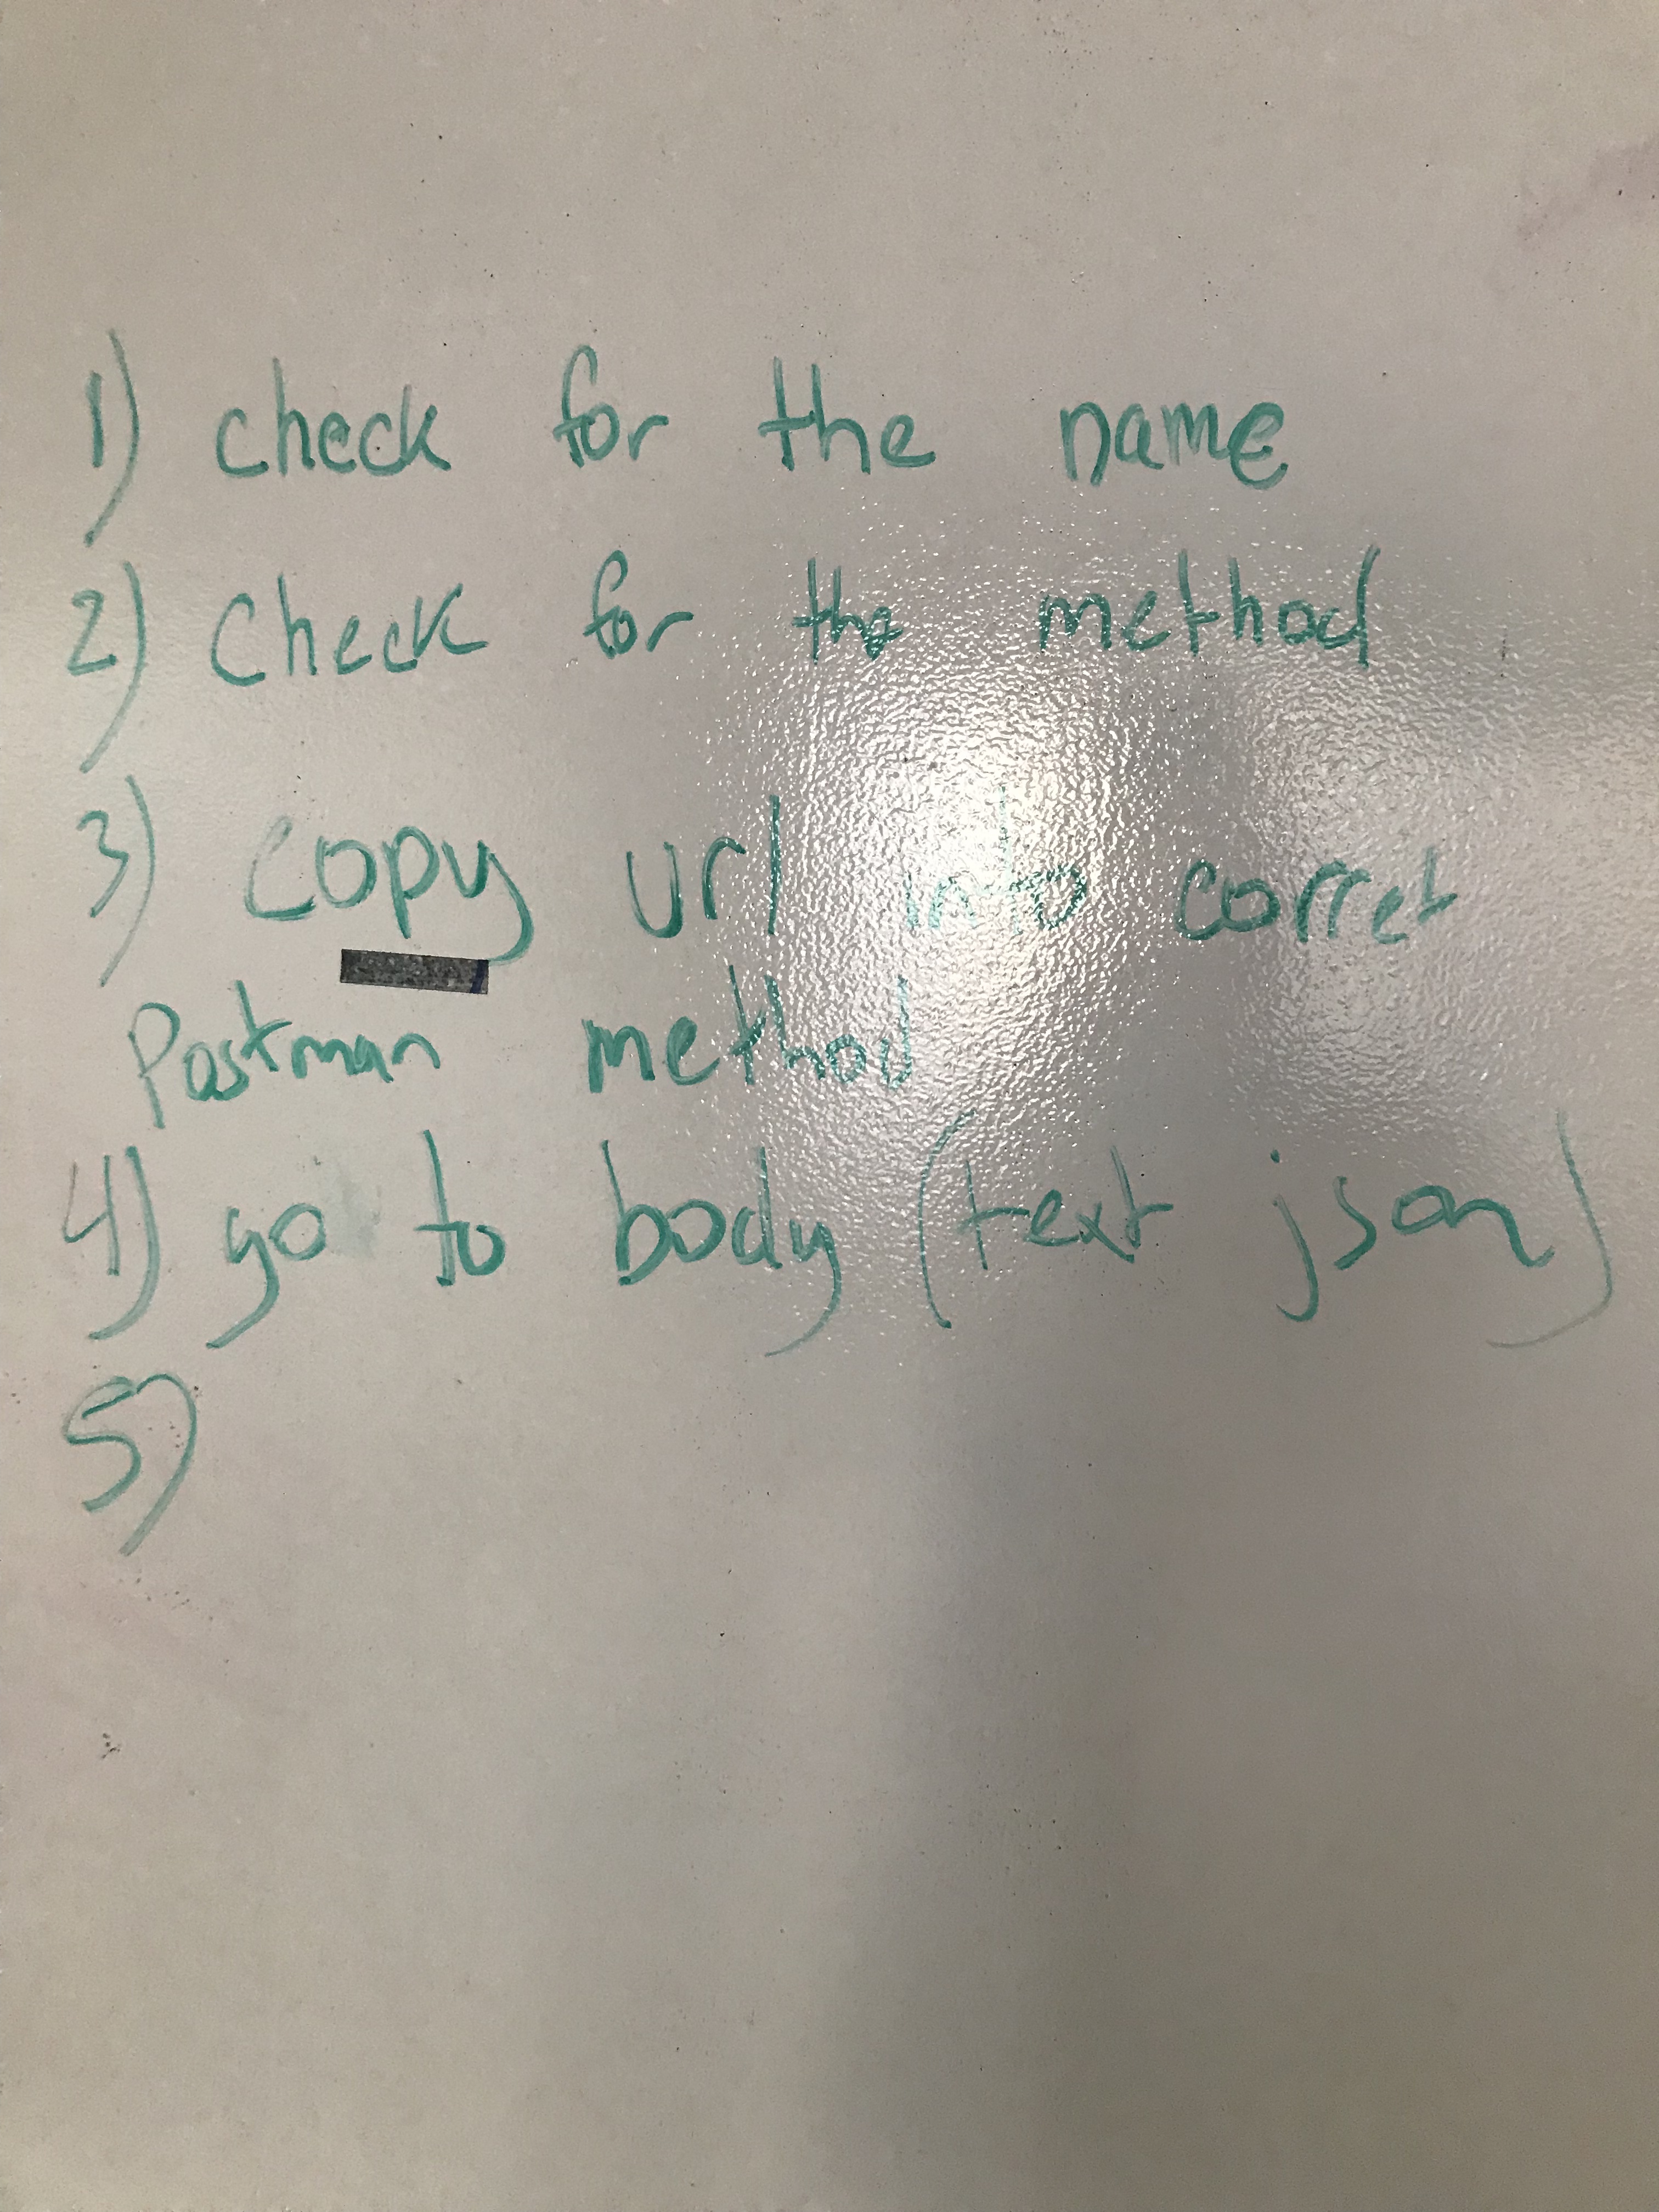 1) check for the name
2) Check for the method
3) copy url into corret
Postman method
4) go to body (text json)
5)